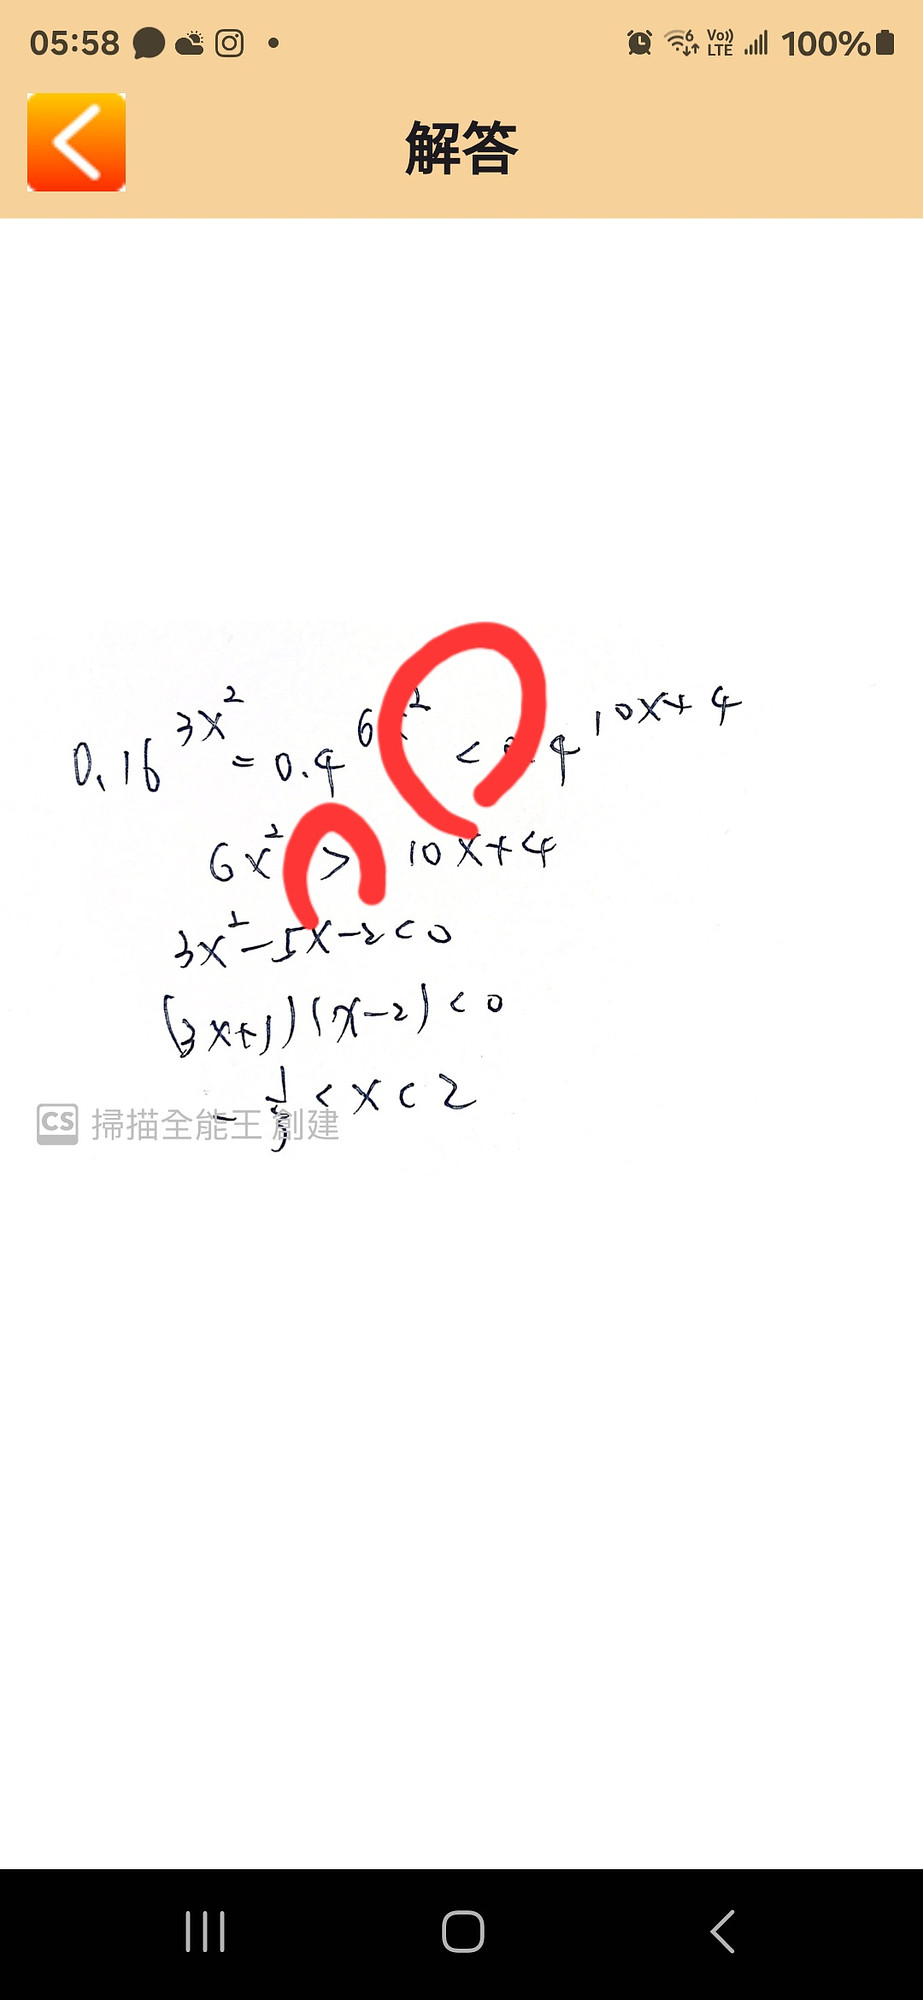 05:58 Vo)) LTE 6 100%
解答
0.16^{3x^2} = 0.4^{6x^2} < 0.4^{10x+4}
6x^2 > 10x+4
3x^2-5x-2<0
(3x+1)(x-2)<0
-1/3<x<2
CS 掃描全能王 創建